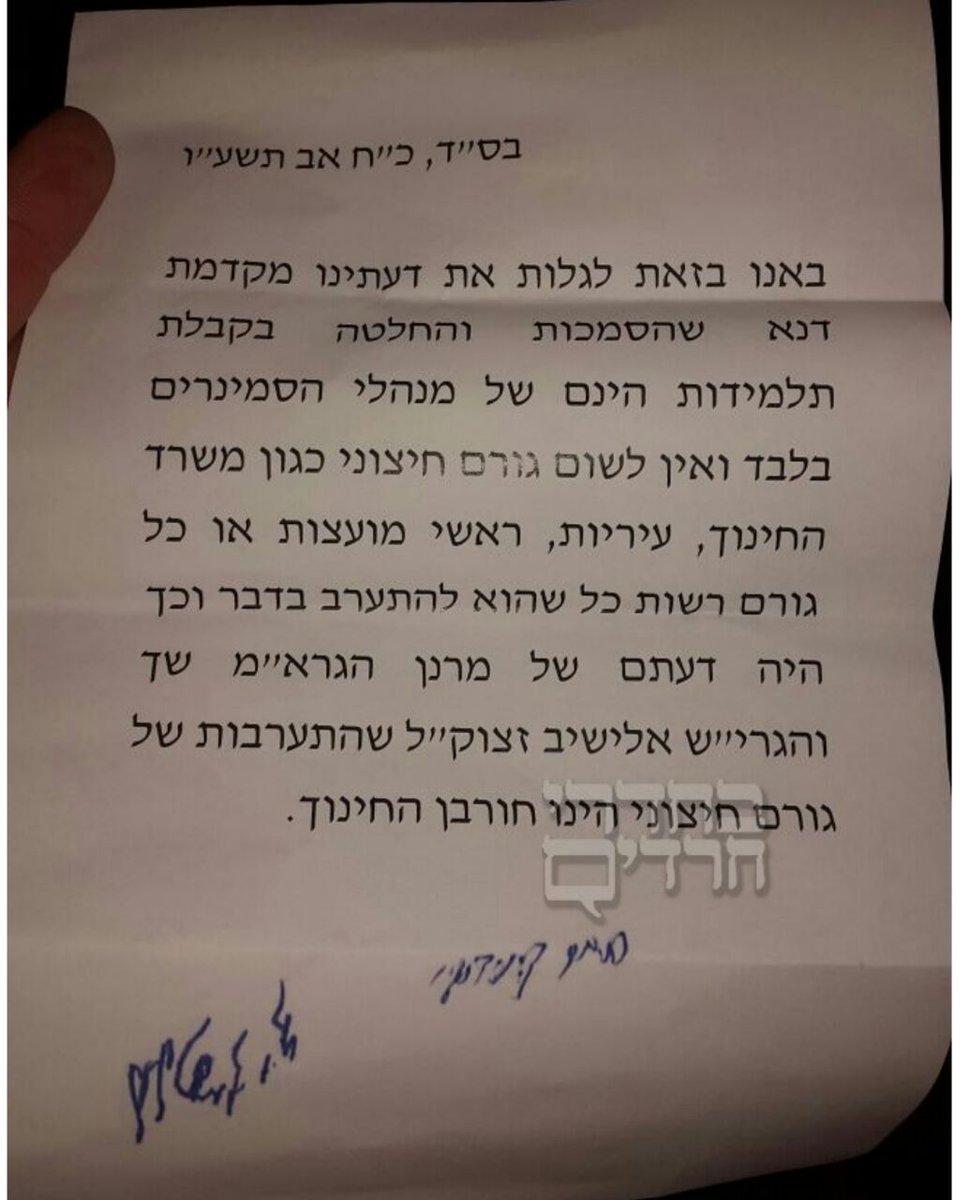 בס״ד, כ״ח אב תשע״ו
באנו בזאת לגלות את דעתינו מקדמת
דנא שהסמכות והחלטה בקבלת
תלמידות הינם של מנהלי הסמינרים
בלבד ואין לשום גורם חיצוני כגון משרד
החינוך, עיריות, ראשי מועצות או כל
גורם רשות כל שהוא להתערב בדבר וכך
היה דעתם של מרנן הגרא״מ שך
והגרי״ש אלישיב זצוק״ל שהתערבות של
גורם חיצוני הינו חורבן החינוך.
חרדים